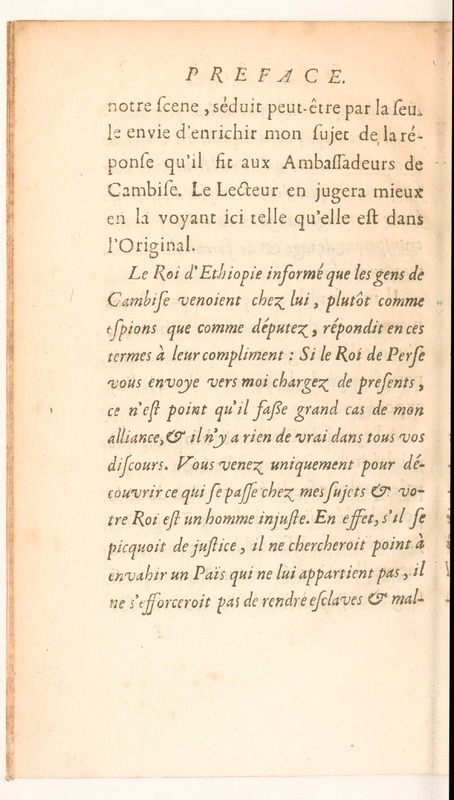 PREFACE.
notre ſcene, ſéduit peut-être par la ſeu-
le envie d'enrichir mon ſujet de la ré-
ponſe qu'il fit aux Ambaſſadeurs de
Cambiſe. Le Lecteur en jugera mieux
en la voyant ici telle qu'elle eſt dans
l'Original.
Le Roi d'Ethiopie informé que les gens de
Cambiſe venoient chez lui, plutôt comme
eſpions que comme députez, répondit en ces
termes à leur compliment : Si le Roi de Perſe
vous envoye vers moi chargez de preſents,
ce n'eſt point qu'il faſſe grand cas de mon
alliance, & il n'y a rien de vrai dans tous vos
diſcours. Vous venez uniquement pour dé-
couvrir ce qui ſe paſſe chez mes ſujets & vo-
tre Roi eſt un homme injuſte. En effet, s'il ſe
picquoit de juſtice, il ne chercheroit point à
envahir un Païs qui ne lui appartient pas, il
ne s'efforceroit pas de rendre eſclaves & mal-